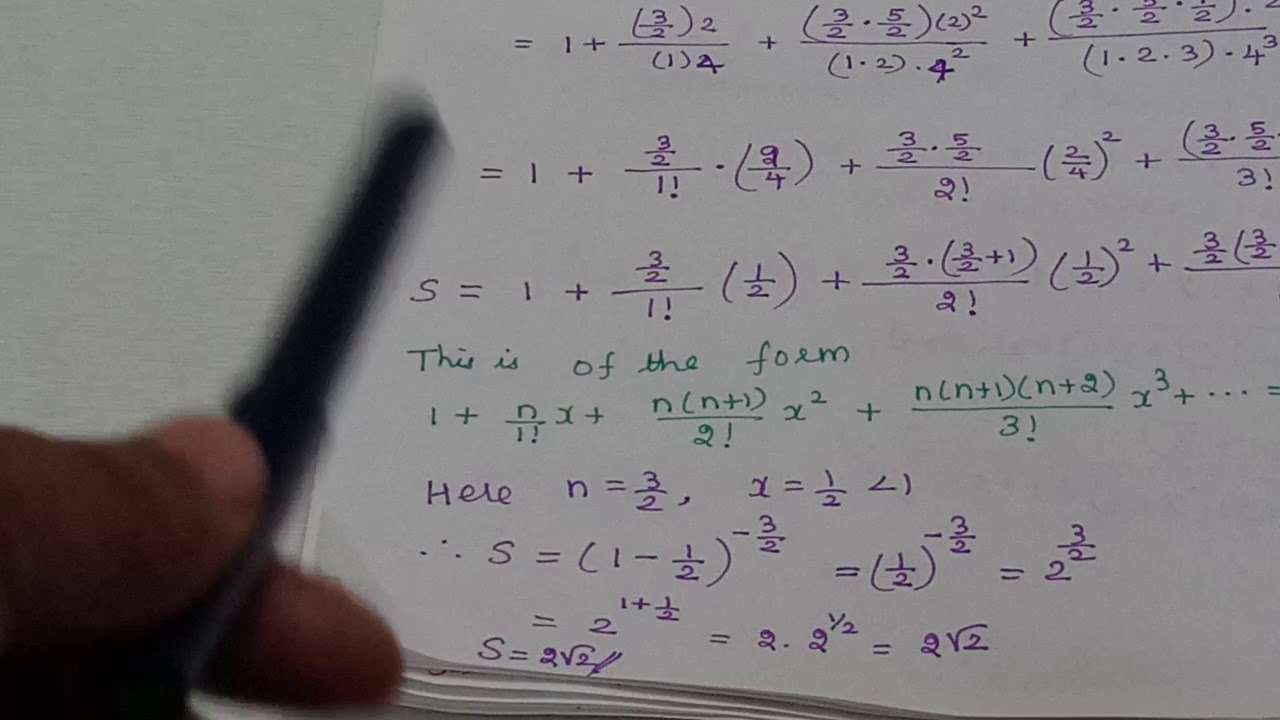 = 1 + (3/2)2/(1)4 + (3/2 · 5/2)(2)²/(1·2)·4² + (3/2 · 5/2 ·/(1·2·3)·4³
= 1 + 3/2/1! · (2/4) + 3/2 · 5/2/2! (2/4)² + (3/2 · 5/2/3!
S = 1 + 3/2/1! (1/2) + 3/2 · (3/2+1)/2! (1/2)² + 3/2 (3/2
This is of the form
1 + n/1! x + n(n+1)/2! x² + n(n+1)(n+2)/3! x³ + ··· =
Here n = 3/2, x = 1/2 <1
∴ S = (1 − 1/2)^(−3/2) = (1/2)^(−3/2) = 2^(3/2)
= 2^(1+1/2) = 2 · 2^(1/2) = 2√2
S = 2√2 //